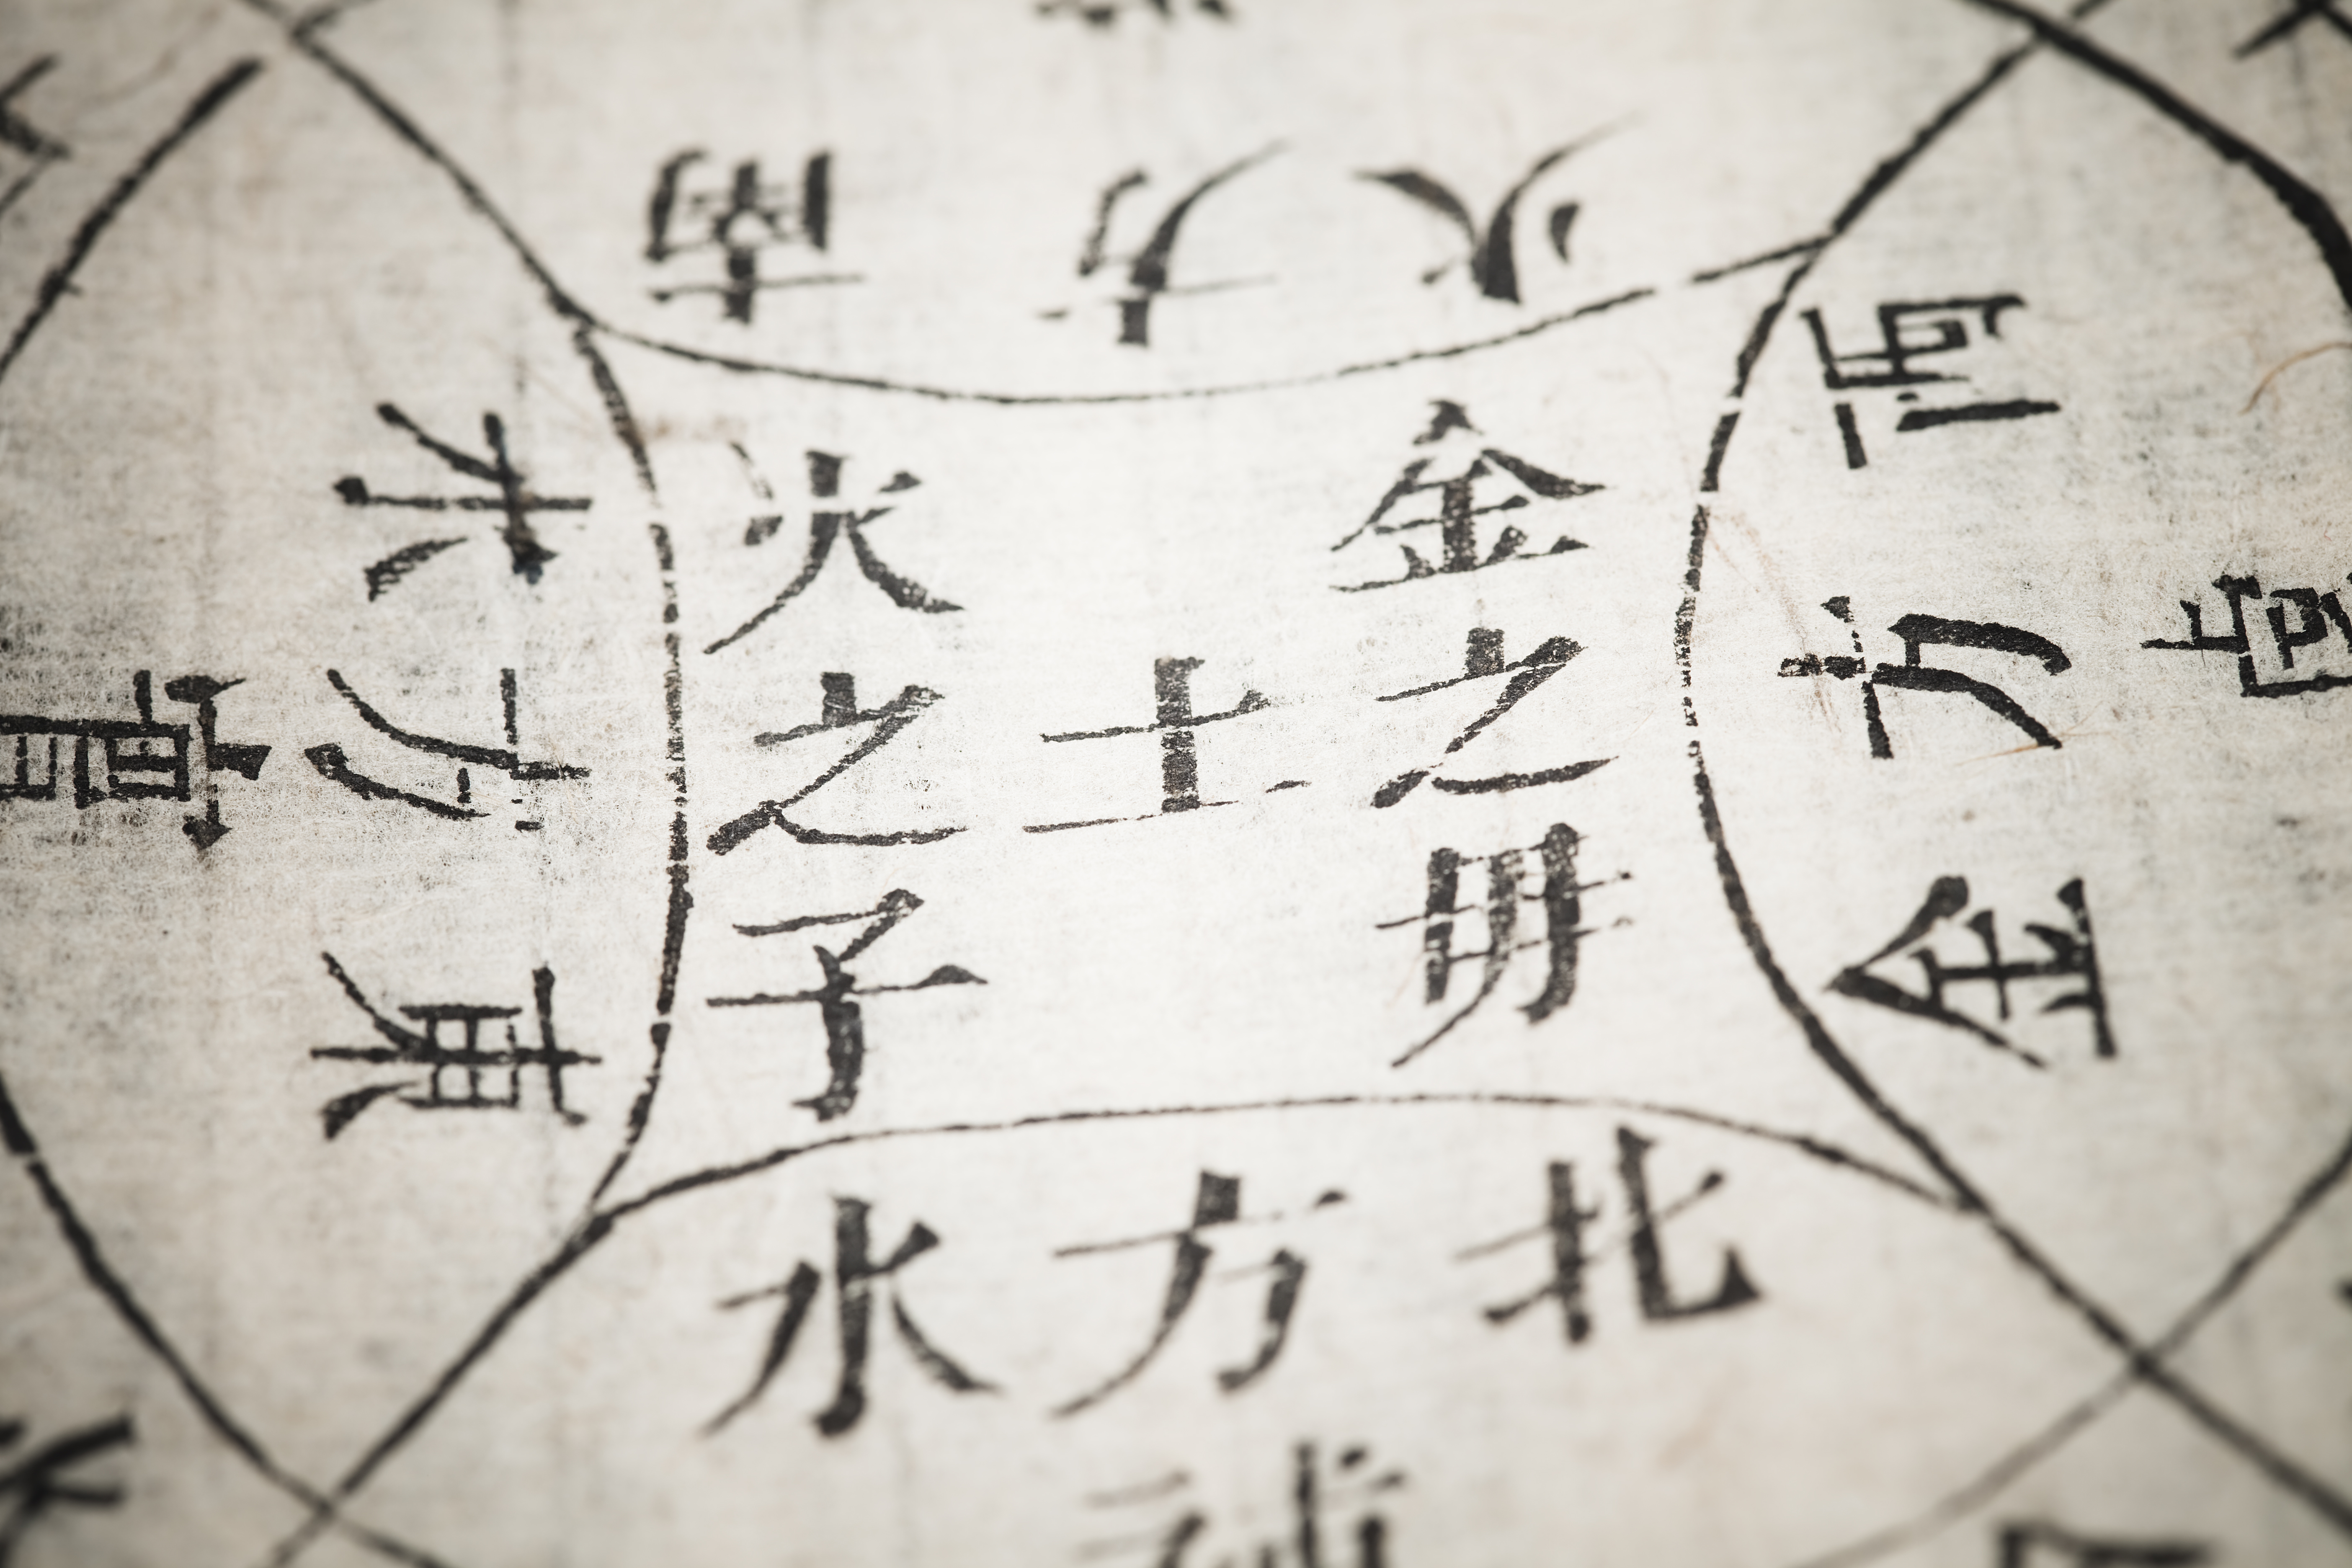 南方火
西方金
金之毋
土
火之子
東方木
北方水